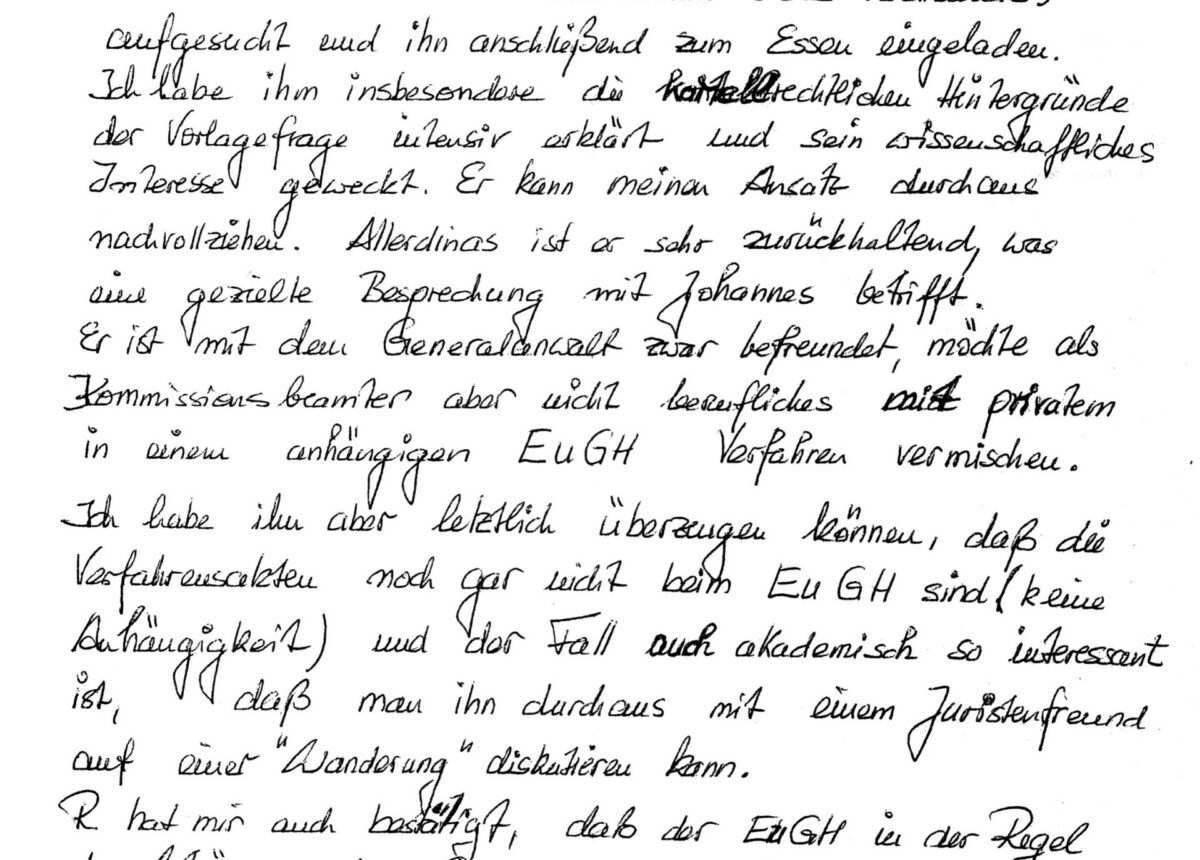 aufgesucht und ihn anschließend zum Essen eingeladen.
Ich habe ihm insbesondere die kartellrechtlichen Hintergründe
der Vorlagefrage intensiv erklärt und sein wissenschaftliches
Interesse geweckt. Er kann meinen Ansatz durchaus
nachvollziehen. Allerdings ist er sehr zurückhaltend, was
eine gezielte Besprechung mit Johannes betrifft.
Er ist mit dem Generalanwalt zwar befreundet, möchte als
Kommissionsbeamter aber nicht berufliches mit privatem
in einem anhängigen EuGH Verfahren vermischen.
Ich habe ihn aber letztlich überzeugen können, daß die
Verfahrensakten noch gar nicht beim EuGH sind (keine
Anhängigkeit) und der Fall auch akademisch so interessant
ist, daß man ihn durchaus mit einem Juristenfreund
auf einer "Wanderung" diskutieren kann.
R hat mir auch bestätigt, daß der EuGH in der Regel